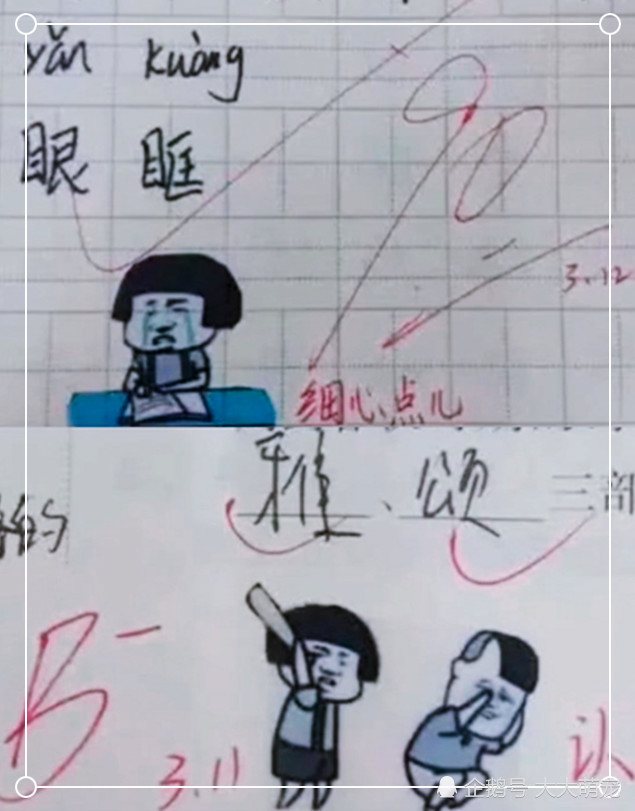 yǎn kuàng
眼眶
90-
3.12
细心点儿
雅、颂三部
的
B-
3.11
认
企鹅号 大大萌宠